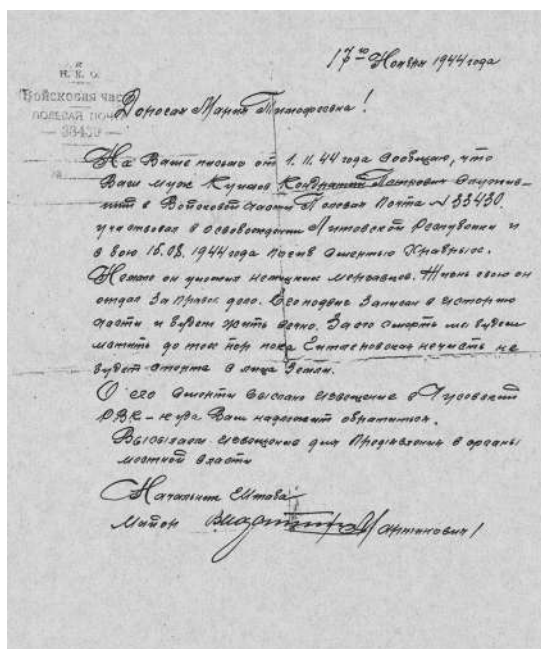 17го Ноября 1944 года
Н. К. О.
Войсковая час
ПОЛЕВАЯ ПОЧ
— 33430 —
Мария Тимофеевна!
На Ваше письмо от 1.11.44 года сообщаю, что
Ваш муж Кондратий
в Войсковой части Полевая Почта № 33430.
участвовал в освобождении Литовской Республики и
в бою 15.08.1944 года погиб смертью Храбрых.
он немецких мерзавцев. Жизнь свою он
отдал За Правое дело. Его подвиг Записан в историю
части и будет жить вечно. За его смерть мы будем
мстить до тех пор пока Гитлеровская нечисть не
будет стерта с лица Земли.
О его смерти выслано извещение в Чусовский
РВК – куда Вам надлежит обратиться.
Высылаем извещение для Предъявления в органы
местной власти
Начальник Штаба
Майор